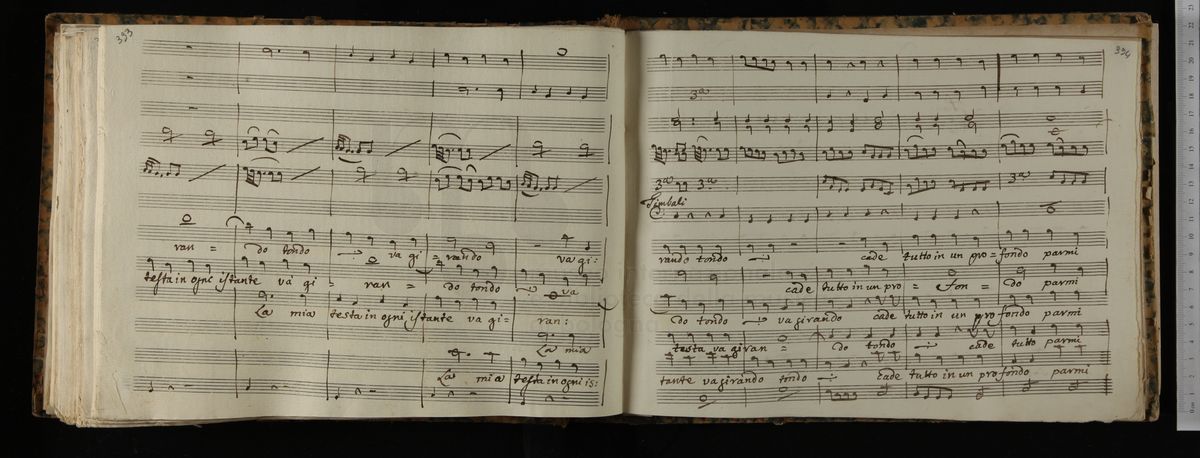 393
ran = do tondo va gi = rando va gi:
testa in ogni istante va gi = ran = do tondo va
La mia testa in ogni istante va gi = ran:
La mia
La mia testa in ogni is:
394
3ª
3ª 3ª 3ª
Timbali
rando tondo cade tutto in un pro = fondo parmi
cade tutto in un pro = fon = do parmi
do tondo va girando cade tutto in un profondo parmi
testa va giran = do tondo cade tutto parmi
tante va girando tondo cade tutto in un profondo parmi